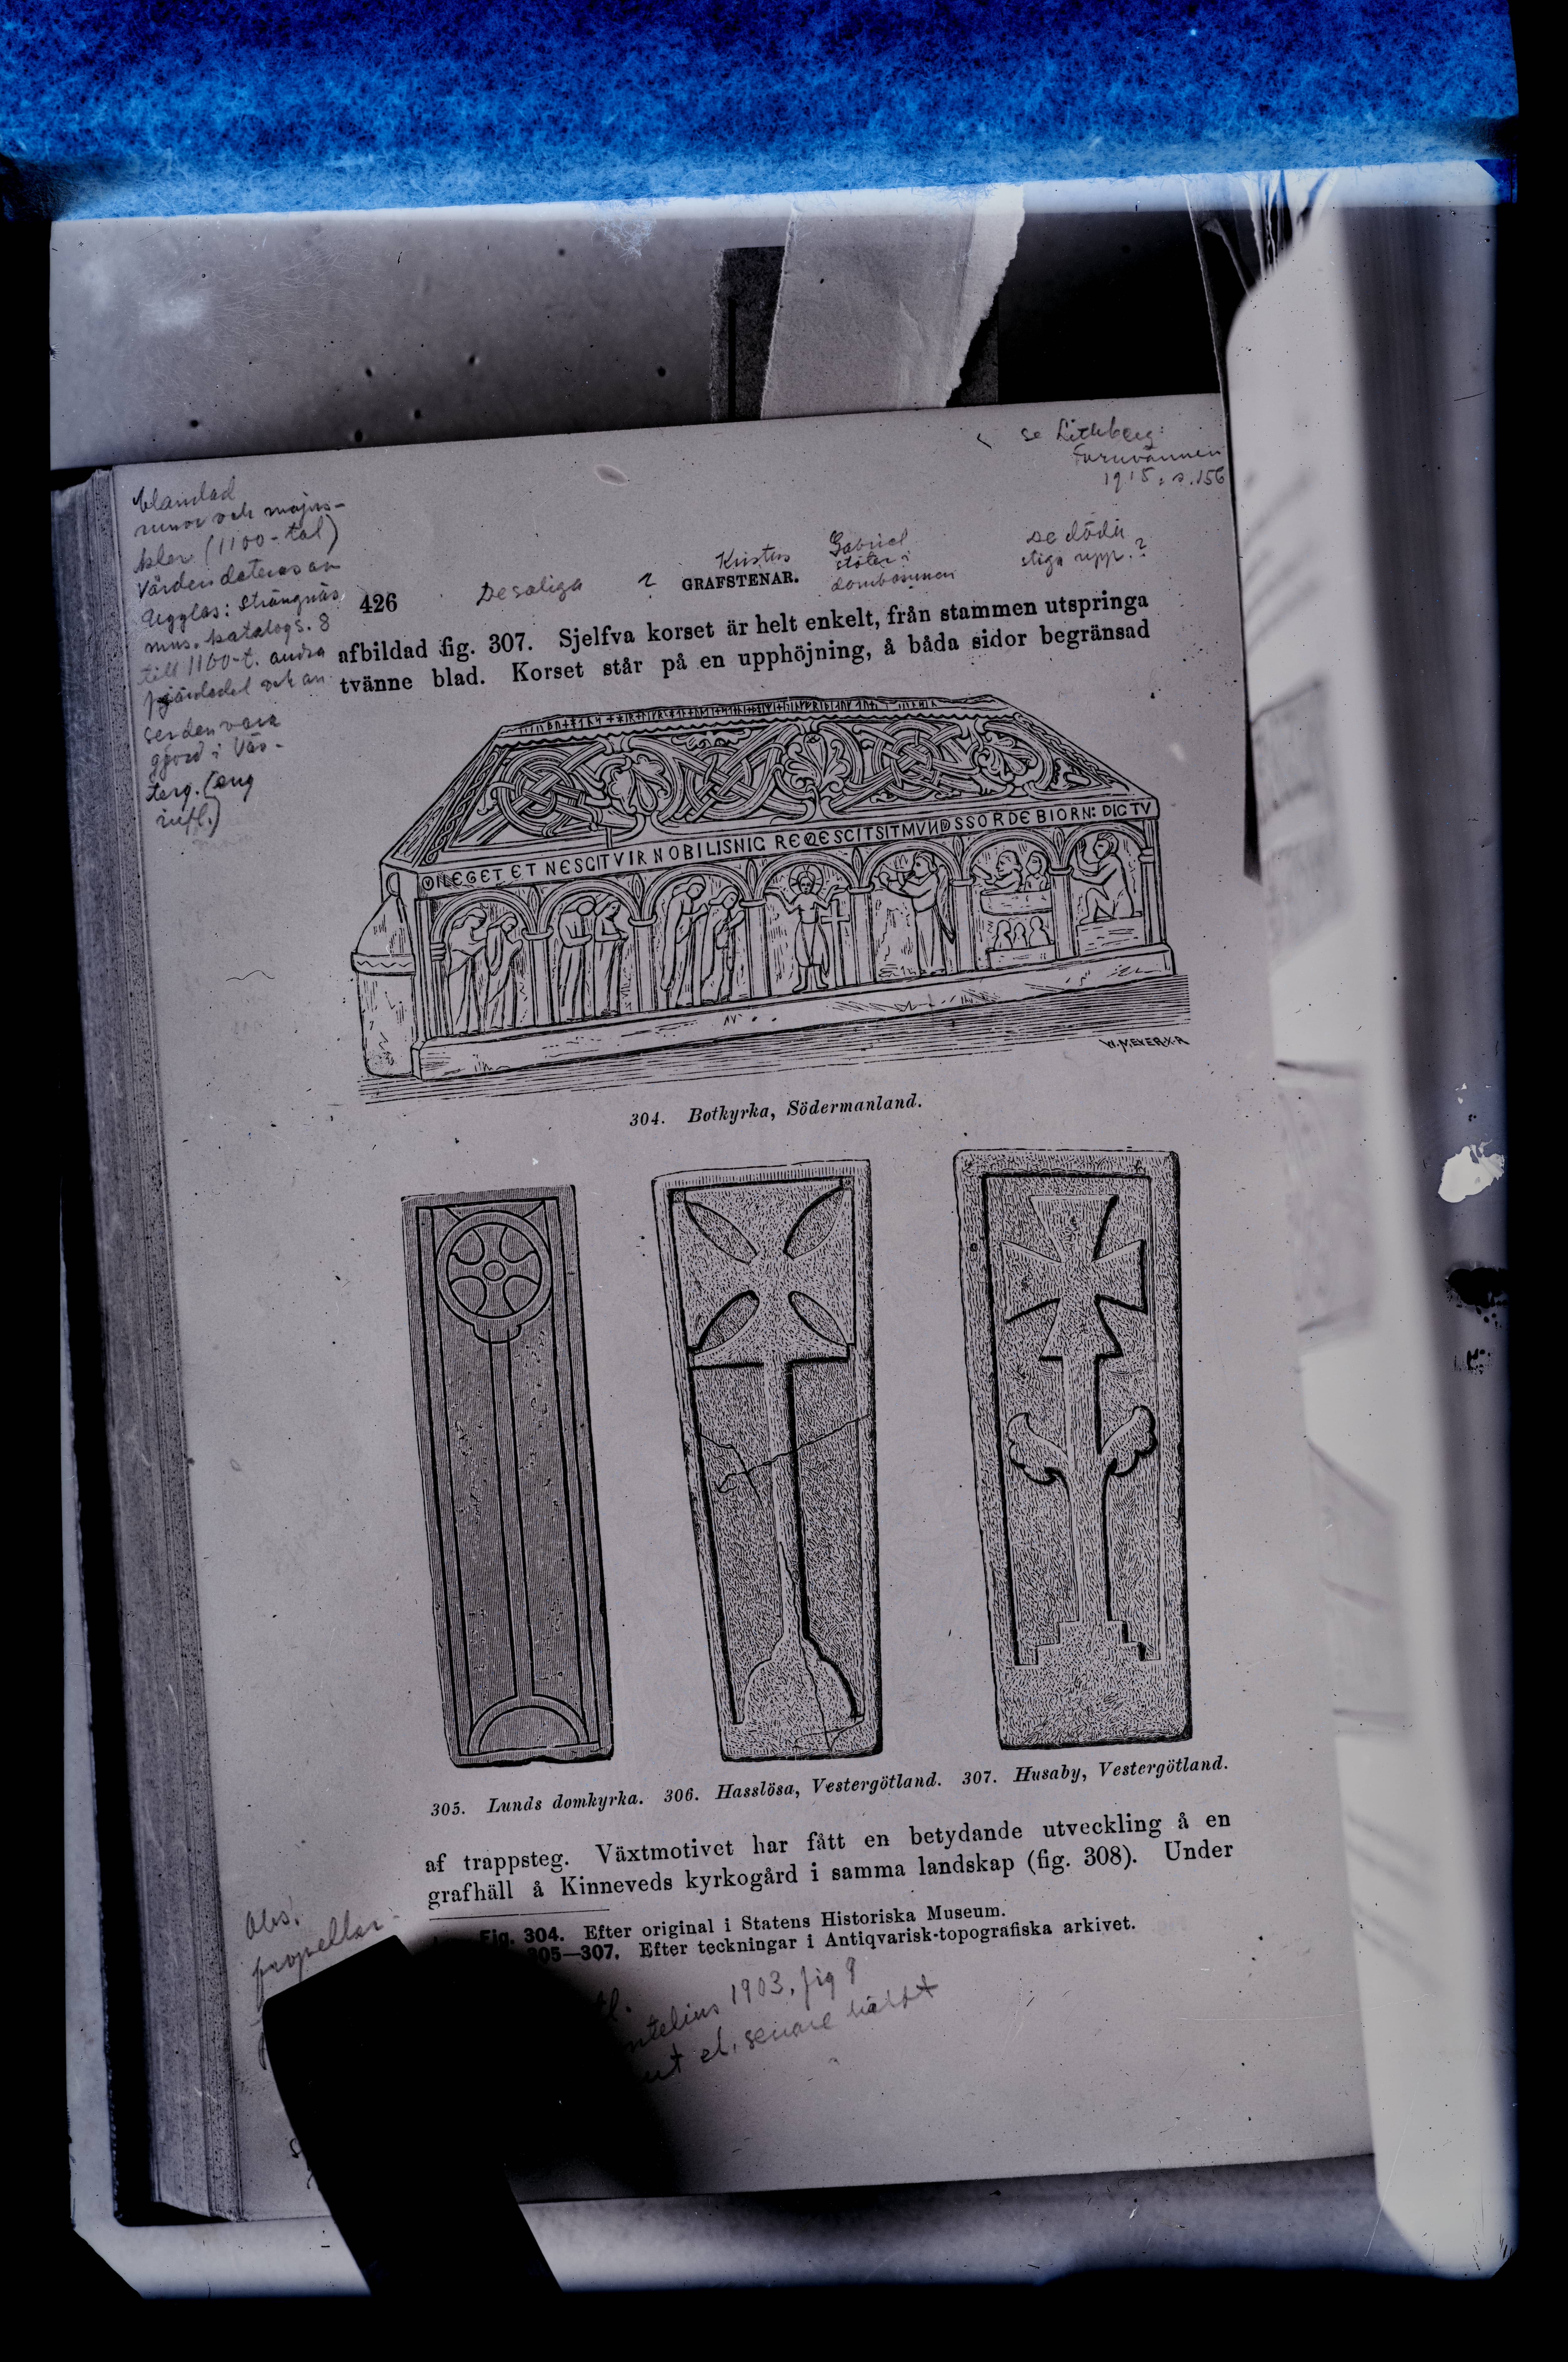 se Lithberg:
Fornvännen
1915, s. 156
blandad
runor och majus-
kler (1100-tal)
Vården dateras av
Ugglas: Strängnäs
mus. katalog s. 8
till 1100-t. andra
fjärdedel och an
ser den vara
gjord i Väs-
terg. (eng
infl.)
De saliga ? Kristus
Gabriel
stöter i
dombasunen
de döda
stiga upp. ?
426 GRAFSTENAR.
afbildad fig. 307. Sjelfva korset är helt enkelt, från stammen utspringa
tvänne blad. Korset står på en upphöjning, å båda sidor begränsad
DILEGET ET NESCIT VIR NOBILIS NIC REQESCIT SIT MVNDS SORDE BIORN: DIC TV
W. MEYER X. A
304. Botkyrka, Södermanland.
305. Lunds domkyrka. 306. Hasslösa, Vestergötland. 307. Husaby, Vestergötland.
af trappsteg. Växtmotivet har fått en betydande utveckling å en
grafhäll å Kinneveds kyrkogård i samma landskap (fig. 308). Under
Fig. 304. Efter original i Statens Historiska Museum.
305—307. Efter teckningar i Antiqvarisk-topografiska arkivet.
Obs.
propeller-
ntelius 1903, fig 9
el. senare hälft